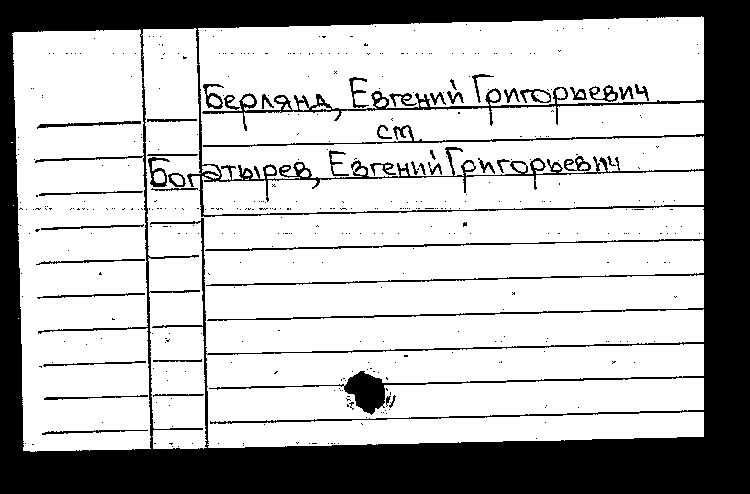 Берлянд, Евгений Григорьевич
ст.
Богатырев, Евгений Григорьевич